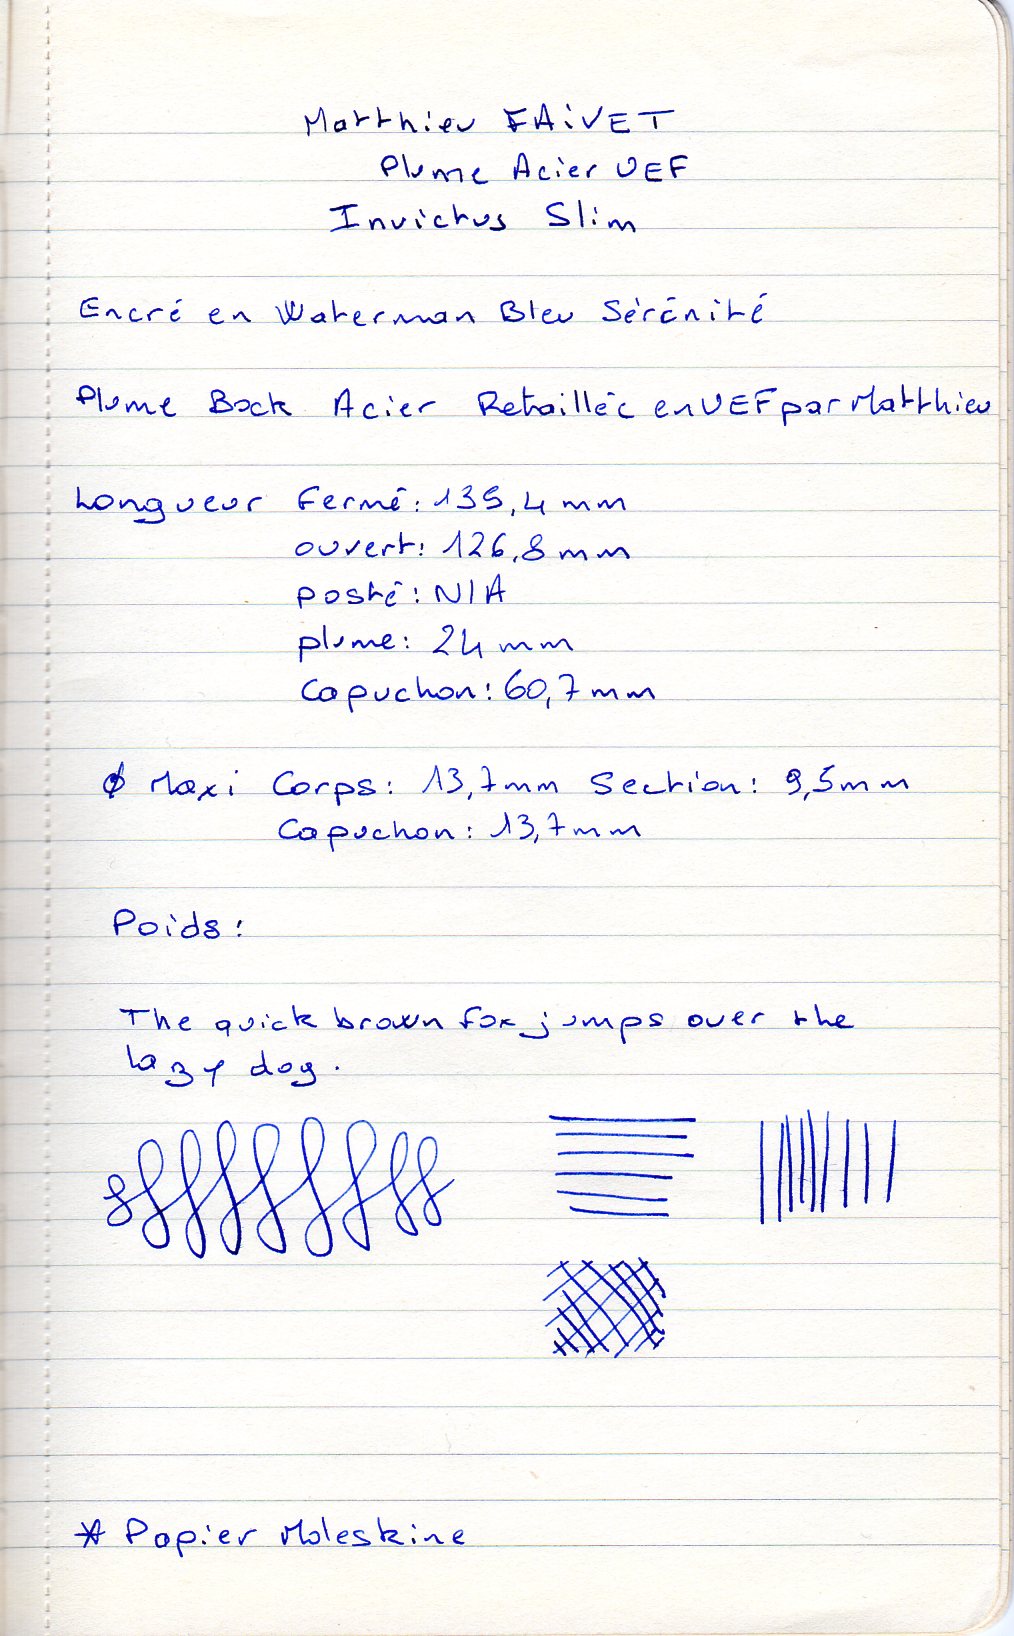 Matthieu FAiVET
Plume Acier UEF
Invictus Slim
Encré en Waterman Bleu Sérénité
Plume Bock Acier Retaillée en UEF par Matthieu
Longueur Fermé : 139,4 mm
ouvert : 126,8 mm
posté : N/A
plume : 24 mm
Capuchon : 60,7 mm
Ø Maxi Corps : 13,7 mm Section : 9,5 mm
Capuchon : 13,7 mm
Poids :
The quick brown fox jumps over the
lazy dog.
* Papier Moleskine